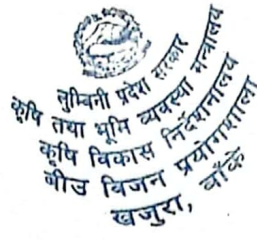 लुम्बिनी प्रदेश सरकार
कृषि तथा भूमि व्यवस्था मन्त्रालय
कृषि विकास निर्देशनालय
बीउ विजन प्रयोगशाला
खजुरा, बाँके